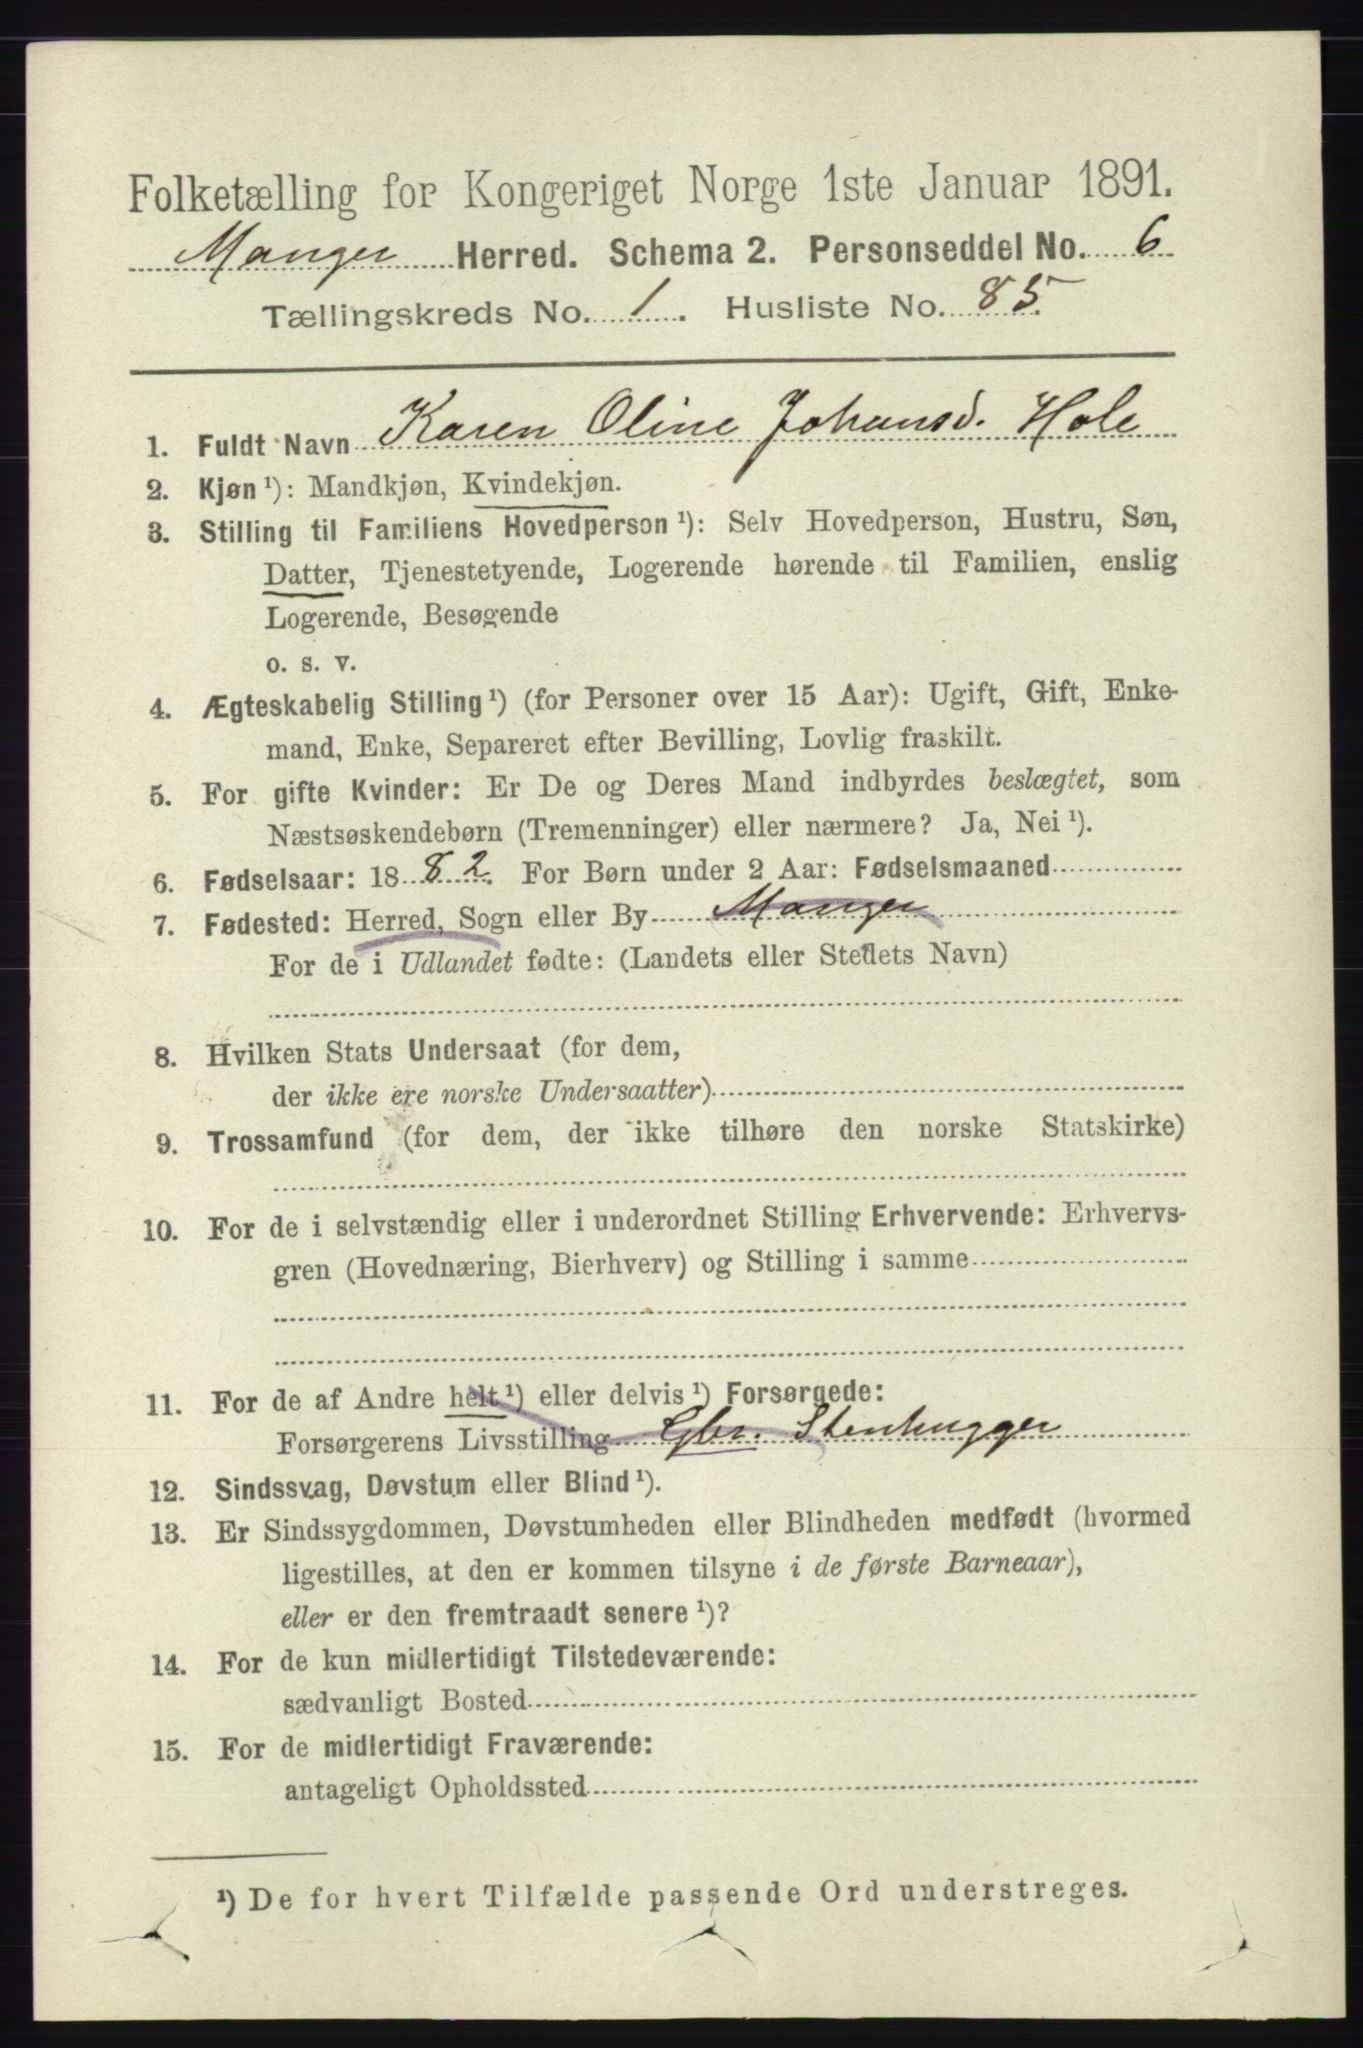 Folketælling for Kongeriget Norge 1ste Januar 1891.
Manger Herred. Schema 2. Personseddel No. 6
Tællingskreds No. 1. Husliste No. 85.
1. Fuldt Navn Karen Oline Johansd. Hole
2. Kjøn¹): Mandkjøn, Kvindekjøn.
3. Stilling til Familiens Hovedperson¹): Selv Hovedperson, Hustru, Søn,
Datter, Tjenestetyende, Logerende hørende til Familien, enslig
Logerende, Besøgende
o. s. v.
4. Ægteskabelig Stilling¹) (for Personer over 15 Aar): Ugift, Gift, Enke-
mand, Enke, Separeret efter Bevilling, Lovlig fraskilt.
5. For gifte Kvinder: Er De og Deres Mand indbyrdes beslægtet, som
Næstsøskendebørn (Tremenninger) eller nærmere? Ja, Nei¹).
6. Fødselsaar: 1882. For Børn under 2 Aar: Fødselsmaaned
7. Fødested: Herred, Sogn eller By Manger
For de i Udlandet fødte: (Landets eller Stedets Navn)
8. Hvilken Stats Undersaat (for dem,
der ikke ere norske Undersaatter)
9. Trossamfund (for dem, der ikke tilhøre den norske Statskirke)
10. For de i selvstændig eller i underordnet Stilling Erhvervende: Erhvervs-
gren (Hovednæring, Bierhverv) og Stilling i samme
11. For de af Andre helt¹) eller delvis¹) Forsørgede:
Forsørgerens Livsstilling Gbr. Stenhugger
12. Sindssvag, Døvstum eller Blind¹).
13. Er Sindssygdommen, Døvstumheden eller Blindheden medfødt (hvormed
ligestilles, at den er kommen tilsyne i de første Barneaar),
eller er den fremtraadt senere¹)?
14. For de kun midlertidigt Tilstedeværende:
sædvanligt Bosted
15. For de midlertidigt Fraværende:
antageligt Opholdssted
¹) De for hvert Tilfælde passende Ord understreges.